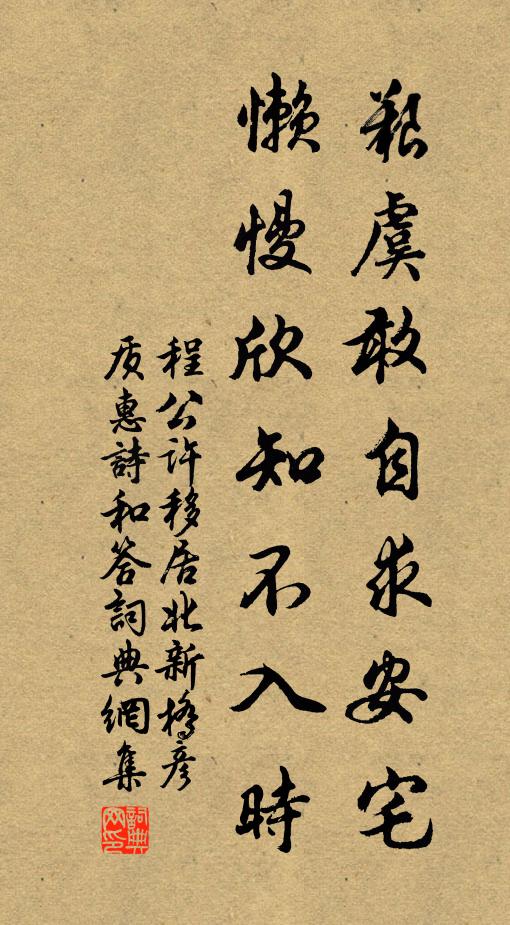 艱虞敢自求安宅
懶慢欣知不入時
程公許移居北新橋彦
质惠詩和答詞典網集
詞典
网印